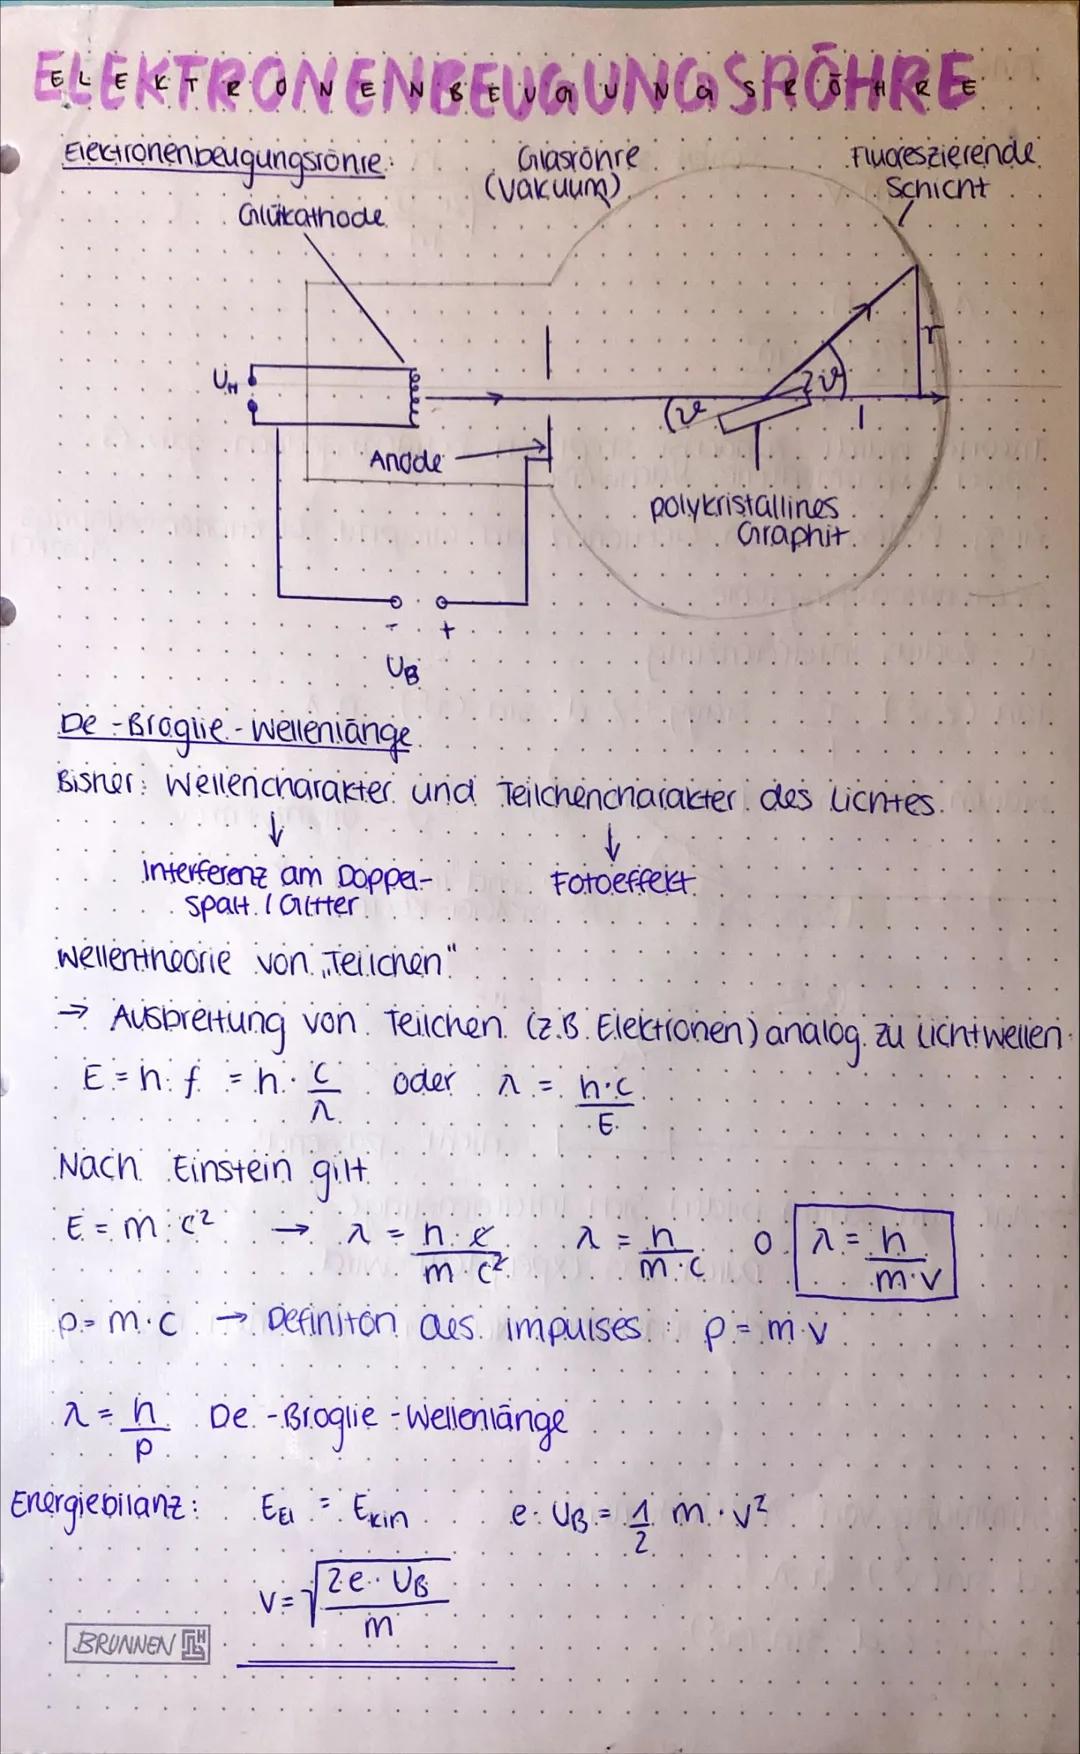 ELEKTRONENBEUGUNGSRÖHRE
Elektronenbeugungsröhre:
Glasröhre
(Vakuum)
Fluoreszierende
Schicht
Glükathode
UH
r
2ϑ
(ϑ
l
Anode
polykristallines
Graphit
- +
UB
De-Broglie-Wellenlänge
Bisher: Wellencharakter und Teilchencharakter des Lichtes
↓ ↓
Interferenz am Doppel- Fotoeffekt
spalt / Gitter
Wellentheorie von „Teilchen"
→ Ausbreitung von Teilchen (z.B. Elektronen) analog zu Lichtwellen
E = h · f = h · c/λ oder λ = h·c/E
Nach Einstein gilt
E = m · c² → λ = h · c/m · c² λ = h/m · c o λ = h/m · v
p = m · c → Definiton des impulses : p = m · v
λ = h/p De-Broglie-Wellenlänge
Energiebilanz: EEl = Ekin e · UB = 1/2 m · v²
v = √2e · UB/m
BRUNNEN